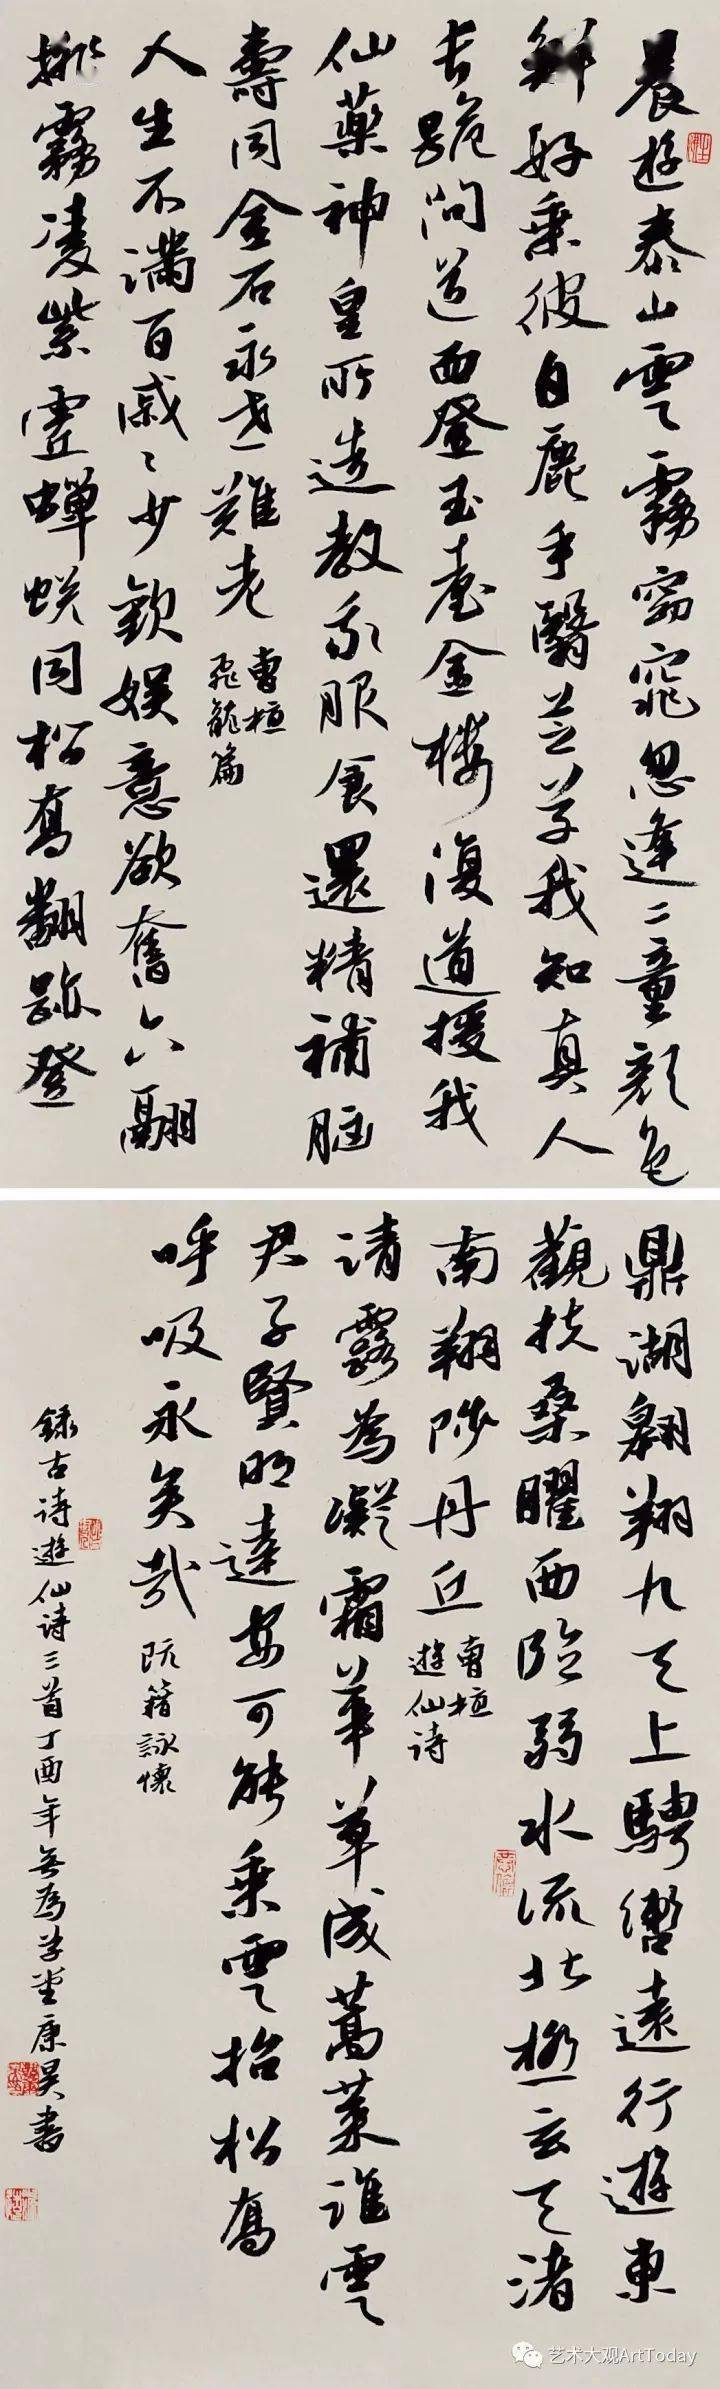 晨遊泰山雲霧窈窕忽逢二童顏色
鮮好乘彼白鹿手翳芝草我知真人
長跪問道西登玉臺金樓復道授我
仙藥神皇所造教我服食還精補腦
壽同金石永世難老
曹植
飛龍篇
人生不滿百戚〻少歡娛意欲奮六翮
排霧凌紫虛蟬蛻同松喬翻跡登
鼎湖翱翔九天上騁轡遠行遊東
觀扶桑曜西臨弱水流北極玄天渚
南翔陟丹丘
曹植
遊仙詩
清露為凝霜華草成蒿萊誰雲
君子賢明達安可能乘雲招松喬
呼吸永矣哉
阮籍詠懷
錄古詩遊仙詩三首丁酉年無為草堂康昊書
艺术大观ArtToday